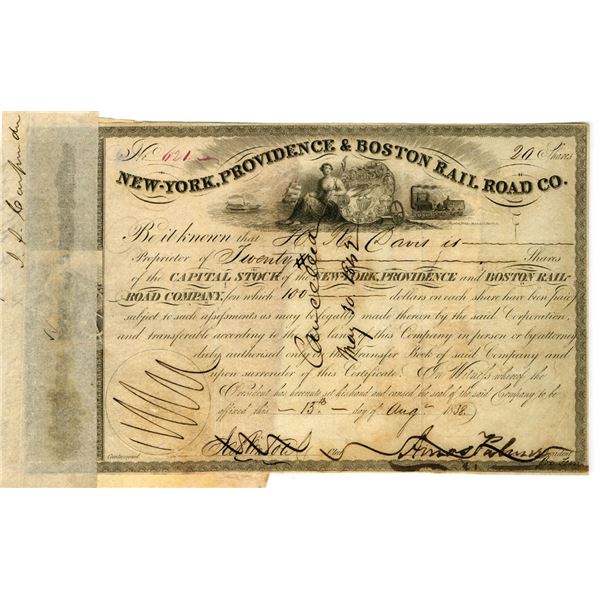 No. 621
20 Shares
NEW-YORK, PROVIDENCE & BOSTON RAIL ROAD CO.
Be it known that H. W. Davis is
Proprietor of Twenty Shares
of the CAPITAL STOCK of the NEW-YORK, PROVIDENCE and BOSTON RAIL-
ROAD COMPANY, for which 100 dollars on each share have been paid,
subject to such assessments as may be legally made thereon by the said Corporation,
and transferable according to the laws of this Company in person or by attorney
duly authorised only on the Transfer Book of said Company and
upon surrender of this Certificate. In Witness whereof the
President has hereunto set his hand and caused the seal of the said Company to be
affixed this 15th day of Augt 1838
Countersigned
Clerk
Amos Palmer President
Pro Tem
Cancelled
May 10 1842